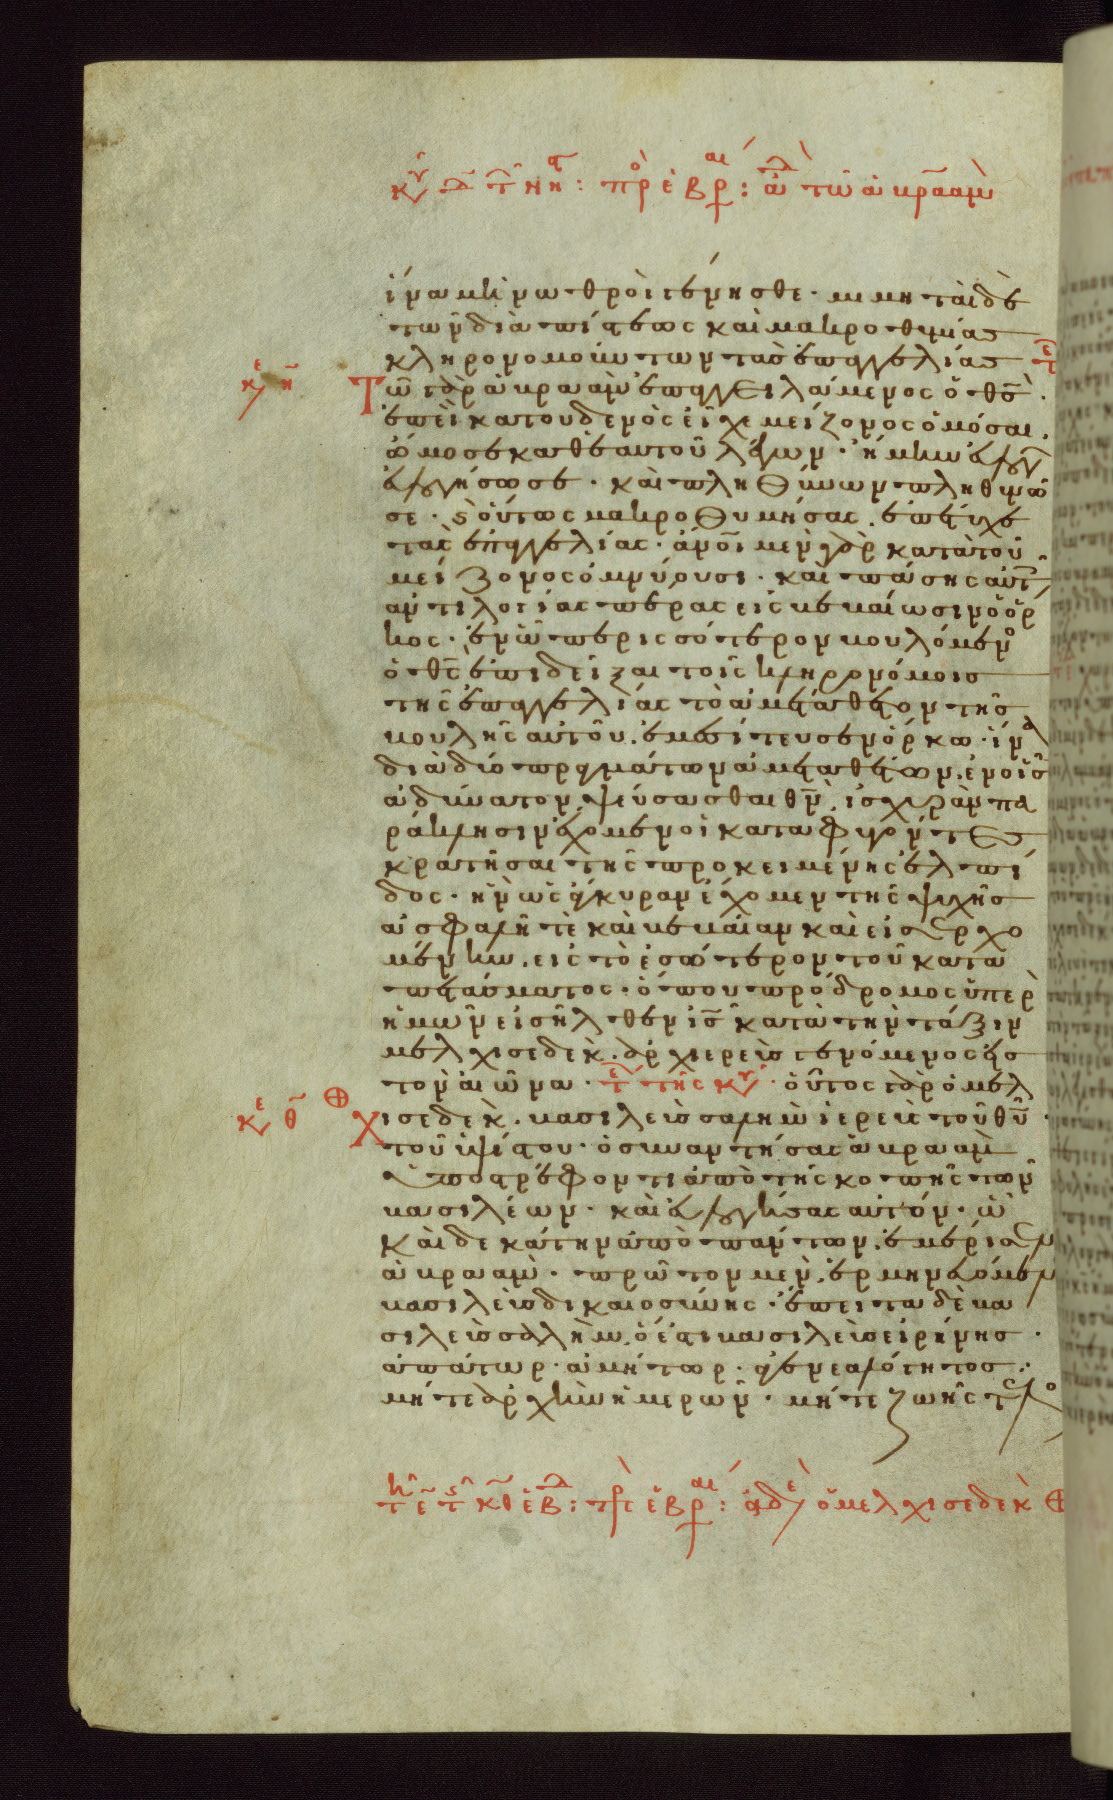 κυ δ τ νη: πρ ἑβρ: ἀδελ τῶ ἀβρααμ
ἵνα μὴ νωθροὶ γένησθε· μιμηταὶ δὲ
τῶν διὰ πίστεως καὶ μακροθυμίας
κληρονομούντων τὰς ἐπαγγελίας
κε η Τῶ γὰρ ἀβραὰμ ἐπαγγειλάμενος ὁ θς·
ἐπεὶ κατουδενὸς εἶχε μείζονος ὀμόσαι.
ὤμοσε καθεαυτοῦ λέγων· ἠ μὴν εὐλογῶν
εὐλογήσω σε· καὶ πληθύνων πληθυνῶ
σε· ϗ οὕτως μακροθυμήσας ἐπέτυχε
τὰς ἐπαγγελίας· ἀνοι μὲν γὰρ κατὰ τοῦ
μείζονος ὀμνύουσι· καὶ πάσης αὐτ
ἀντιλογίας πέρας εἰς βεβαίωσιν ὁ ὅρ
κος· ἐν ὧ περισσότερον βουλόμενο
ὁ θς ἐπιδεῖξαι τοῖς κληρονόμοις
τῆς ἐπαγγελίας τὸ ἀμετάθετον τῆς
βουλῆς αὐτοῦ. ἐμεσίτευσεν ὅρκω· ἵνα
διὰ δύο πραγμάτων ἀμεταθέτων, ἐν οἷς
ἀδύνατον ψεύσασθαι θν, ἰσχυρὰν πα
ράκλησιν ἔχομεν οἱ καταφυγόντες
κρατῆσαι τῆς προκειμένης ἐλπί
δος· ἣν ὡς ἄγκυραν ἔχομεν τῆς ψυχῆς
ἀσφαλῆ τὲ καὶ βεβαίαν καὶ εἰσερχο
μένην. εἰς τὸ ἐσώτερον τοῦ κατα
πετάσματος· ὅπου πρόδρομος ὑπὲρ
ἡμῶν εἰσῆλθεν ις κατὰ τὴν τάξιν
μελχισεδὲκ. ἀρχιερεὺς γενόμενος εἰς
τὸν αἰῶνα· τε τῆς κυ· οὗτος γὰρ ὁ μελ
κε θ ⊕ χισεδὲκ. βασιλεὺς σαλὴμ ἱερεὺς τοῦ θυ
τοῦ ὑψίστου· ὁ συναντήσας ἀβραὰμ
ὑποστρέφοντι ἀπὸ τῆς κοπῆς τῶν
βασιλέων· καὶ εὐλογήσας αὐτόν· ὧ
καὶ δεκάτην ἀπὸ πάντων. ἐμέρισεν
ἀβραὰμ· πρῶτον μὲν, ἑρμηνευόμενος
βασιλεὺς δικαιοσύνης· ἔπειτα δὲ βα
σιλεὺς σαλὴμ, ὅ ἐστι βασιλεὺς εἰρήνης·
ἀπάτωρ· ἀμήτωρ· ἀγενεαλόγητος·
μήτε ἀρχὴν ἡμερῶν· μήτε ζωῆς τέλος
τ ε τ κθ ἑβ: πρ ἑβρ: ἀδε ὁ μελχισεδὲκ ⊕